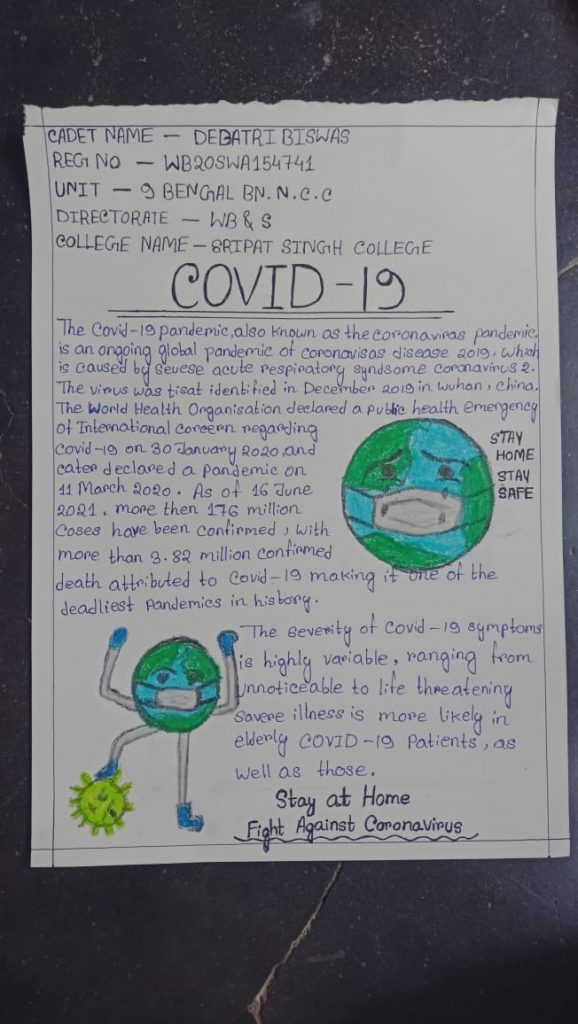 CADET NAME – DEBATRI BISWAS
REG NO – WB20SWA154741
UNIT – 9 BENGAL BN. N.C.C
DIRECTORATE – WB & S
COLLEGE NAME – SRIPAT SINGH COLLEGE
COVID-19
The Covid-19 pandemic, also known as the coronaviras pandemic,
is an ongoing global pandemic of coronavisas disease 2019, which
is caused by sevese acute respiratory syndsome coronavirus 2.
The virus was tisat identified in December 2019 in wuhan, china.
The World Health Organisation declared a public health Emergency
of International corcern regarding
covid-19 on 30 January 2020, and
cater declared a pandemic on
11 March 2020. As of 16 June
2021, more then 176 million
coses have been confirmed, with
more than 3.82 million confirmed
death attributed to Covid-19 making it one of the
deadliest Pandemics in history.
STAY
HOME
STAY
SAFE
The severity of Covid-19 symptoms
is highly variable, ranging from
unnoticeable to life threatening
savere illness is more likely in
elderly COVID-19 Patients, as
well as those.
Stay at Home
Fight Against Coronavirus